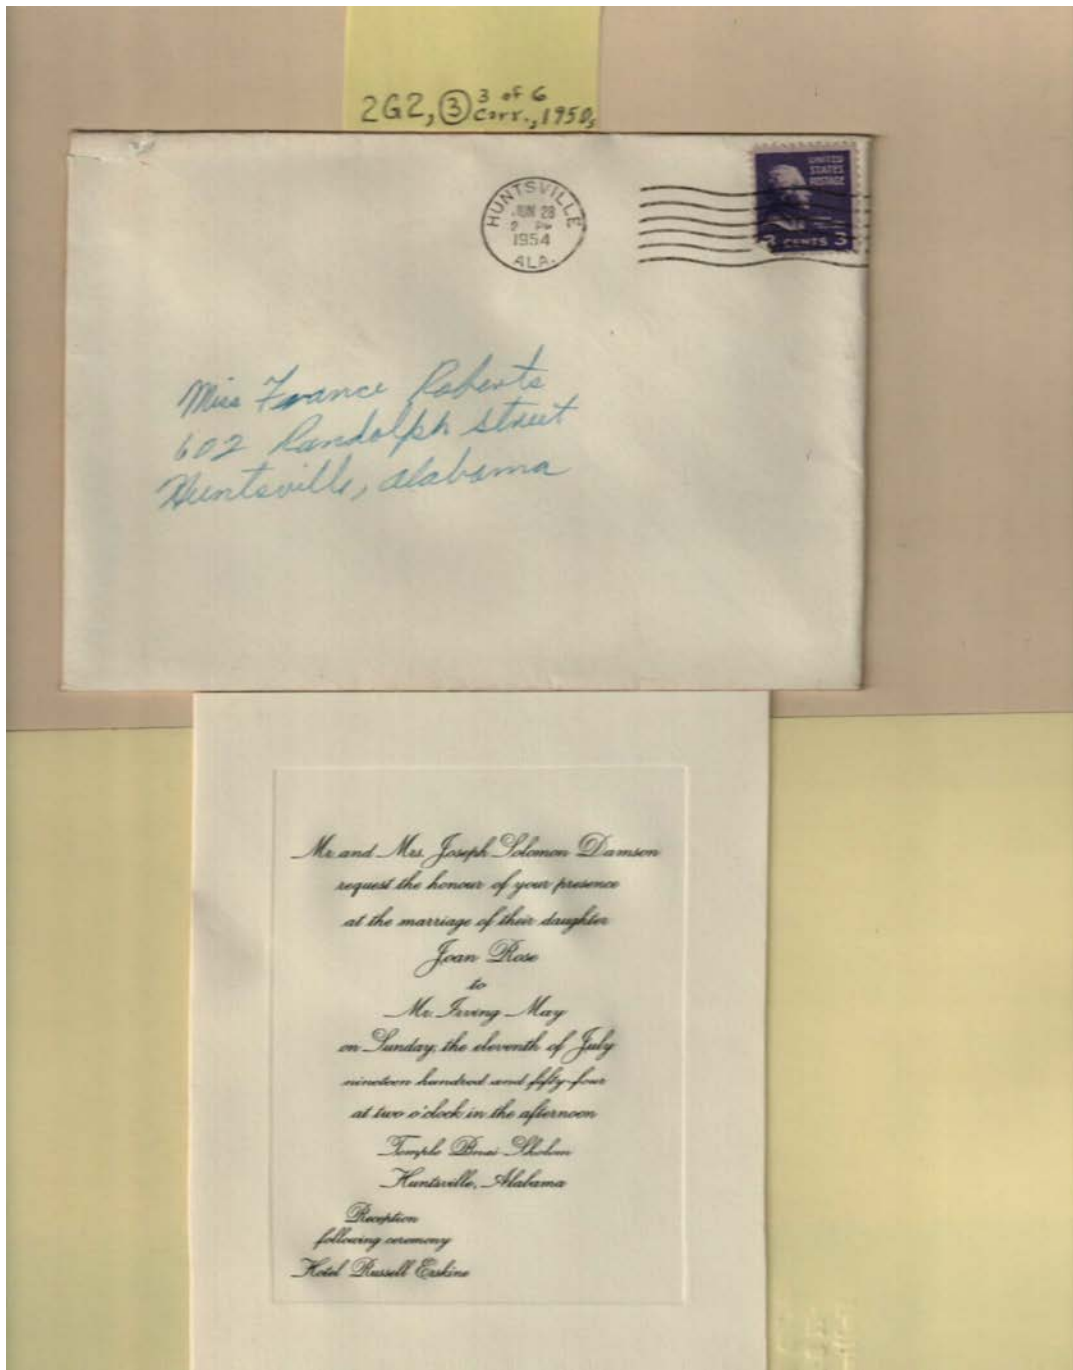 2G2, ③ 3 of 6
Corr., 1950s
HUNTSVILLE
JUN 28
1954
ALA.
UNITED
STATES
POSTAGE
3 CENTS 3
Miss France Roberts
602 Randolph Street
Huntsville, Alabama
Mr. and Mrs. Joseph Solomon Damson
request the honour of your presence
at the marriage of their daughter
Joan Rose
to
Mr. Irving May
on Sunday, the eleventh of July
nineteen hundred and fifty-four
at two o'clock in the afternoon
Temple Bnai Sholom
Huntsville, Alabama
Reception
following ceremony
Hotel Russell Erskine